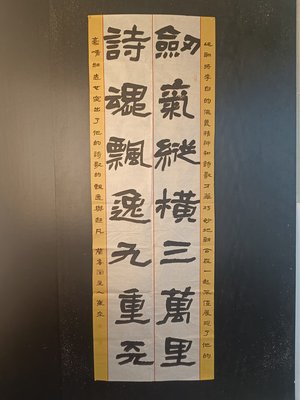 此聯將李白的俠義精神和詩歌才華巧妙地融合在一起不僅展現了他的
劍氣縱橫三萬里
詩魂飄逸九重天
豪情壯志也突出了他的詩歌的飄逸與超凡